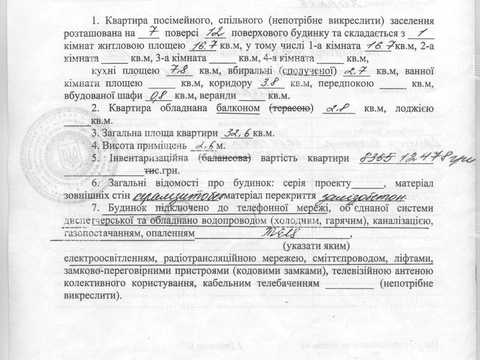 1. Квартира посімейного, спільного (непотрібне викреслити) заселення
розташована на 7 поверсі 12 поверхового будинку та складається з 1
кімнат житловою площею 16.7 кв.м, у тому числі 1-а кімната 16.7 кв.м, 2-а
кімната кв.м, 3-а кімната кв.м, 4-а кімната кв.м,
кухні площею 7.8 кв.м, вбиральні (сполученої) 2.7 кв.м, ванної
кімнати площею кв.м, коридору 3.8 кв.м, передпокою кв.м,
вбудованої шафи 0,8 кв.м, веранди кв.м.
2. Квартира обладнана балконом (терасою) 2.8 кв.м, лоджією
кв.м.
3. Загальна площа квартири 32,6 кв.м.
4. Висота приміщень 2.6 м.
5. Інвентаризаційна (балансова) вартість квартири
тис.грн.
6. Загальні відомості про будинок: серія проекту, матеріал
зовнішніх стін матеріал перекриття залізобетон
7. Будинок підключено до телефонної мережі, об'єднаної системи
диспетчерської та обладнано водопроводом (холодним, гарячим), каналізацією,
газопостачанням, опаленням
(указати яким)
електроосвітленням, радіотрансляційною мережею, сміттєпроводом, ліфтами,
замково-переговорними пристроями (кодовими замками), телевізійною антеною
колективного користування, кабельним телебаченням (непотрібне
викреслити).